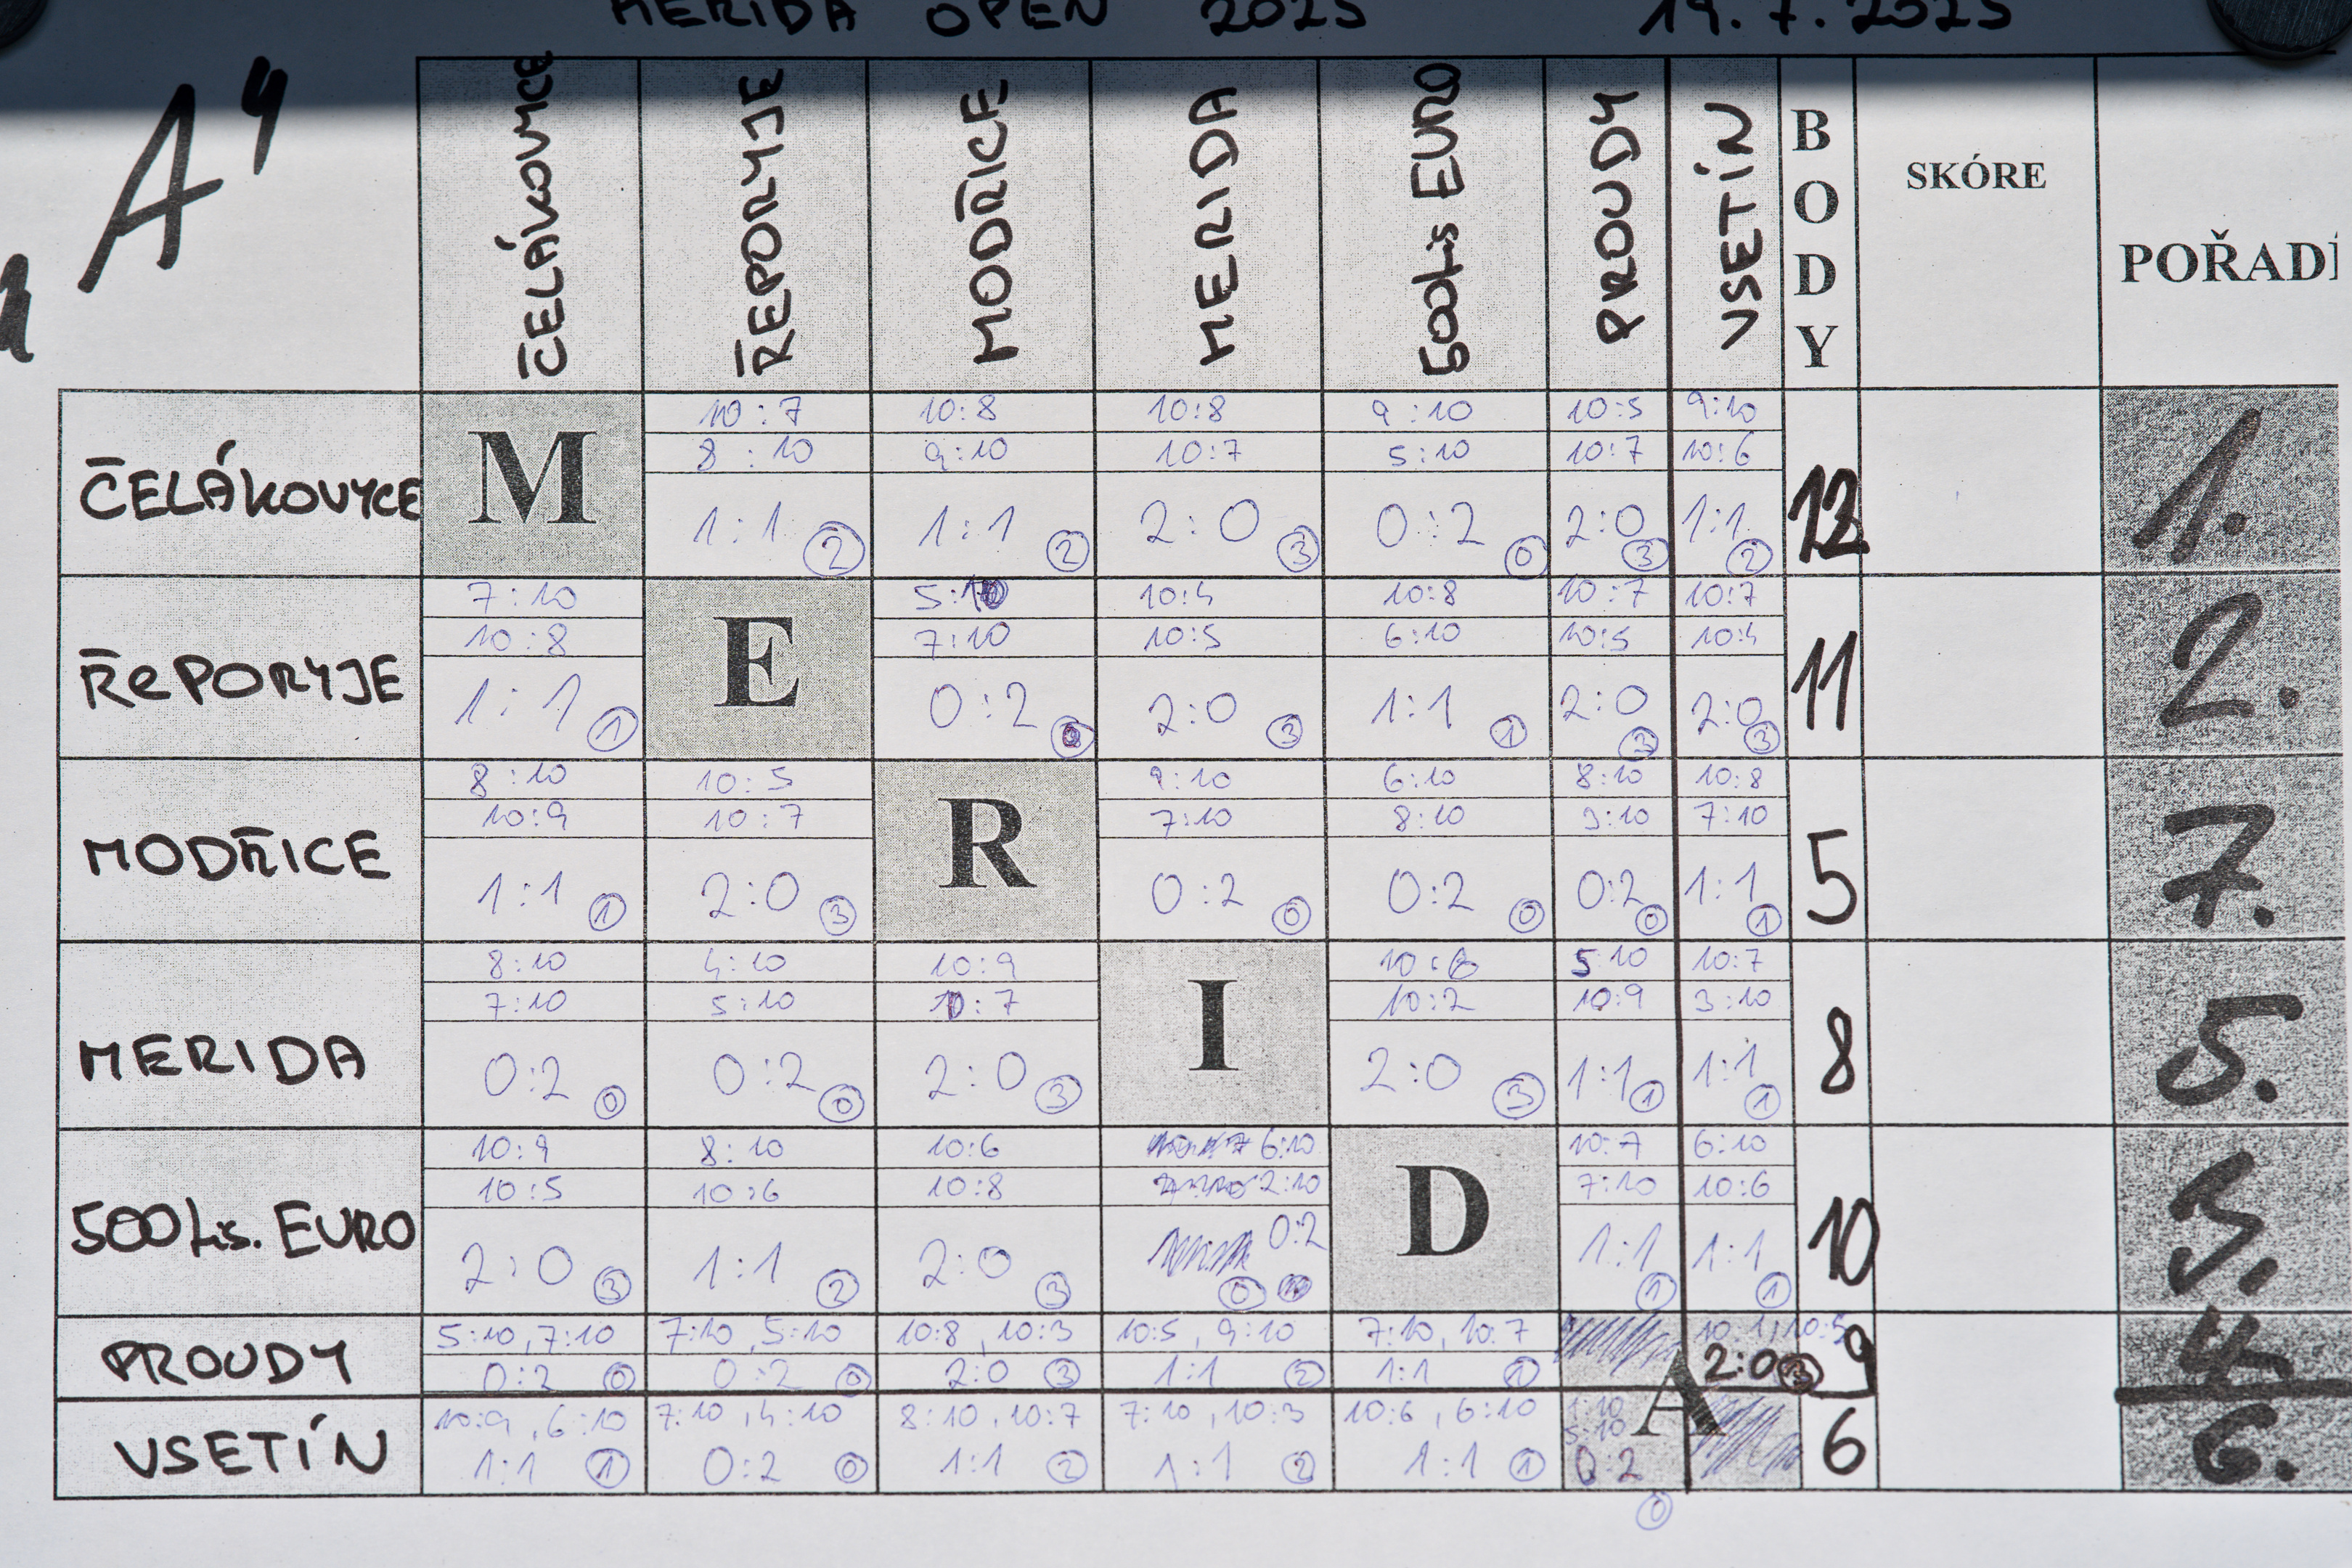 MERIDA OPEN 2025 19.7.2025
"A"
ČELÁKOVICE ŘEPORYJE MODŘICE MERIDA 500Lis EURO PROUDY VSETÍN BODY SKÓRE POŘADÍ
10:7 10:8 10:8 9:10 10:5 9:10
8:10 9:10 10:7 5:10 10:7 10:6
ČELÁKOVYCE M 1:1 2 1:1 2 2:0 3 0:2 0 2:0 3 1:1 2 12 1.
7:10 5:10 10:4 10:8 10:7 10:7
10:8 7:10 10:5 6:10 10:5 10:4
ŘePORYJE 1:1 1 E 0:2 0 2:0 3 1:1 1 2:0 3 2:0 3 11 2.
8:10 10:5 9:10 6:10 8:10 10:8
10:9 10:7 7:10 8:10 3:10 7:10
MODŘICE 1:1 1 2:0 3 R 0:2 0 0:2 0 0:2 0 1:1 1 5 7.
8:10 4:10 10:9 10:6 5:10 10:7
7:10 5:10 10:7 10:2 10:9 3:10
MERIDA 0:2 0 0:2 0 2:0 3 I 2:0 3 1:1 1 1:1 1 8 5.
10:9 8:10 10:6 6:10 10:7 6:10
10:5 10:6 10:8 2:10 7:10 10:6
500Lis. EURO 2:0 3 1:1 2 2:0 3 0:2 0 D 1:1 1 1:1 1 10 3.
5:10, 7:10 7:10, 5:10 10:8, 10:3 10:5, 9:10 7:10, 10:7 10:1, 10:5
PROUDY 0:2 0 0:2 0 2:0 3 1:1 2 1:1 1 A 2:0 3 9 4.
10:9, 6:10 7:10, 4:10 8:10, 10:7 7:10, 10:3 10:6, 6:10 1:10
5:10
VSETÍN 1:1 1 0:2 0 1:1 2 1:1 2 1:1 1 0:2 6 6.
0